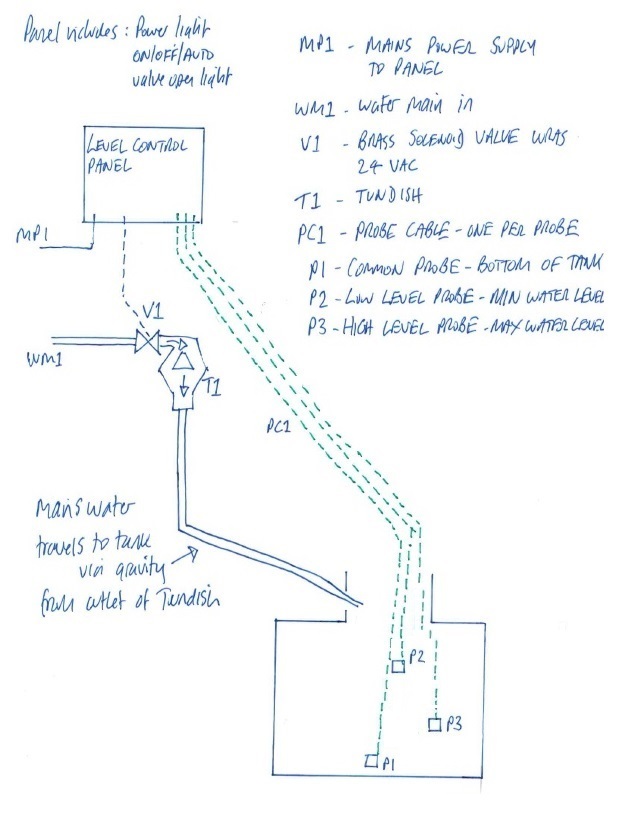 Panel includes: Power light
ON/OFF/AUTO
valve open light
MP1 - MAINS POWER SUPPLY
TO PANEL
WM1 - Water main in
V1 - BRASS SOLENOID VALVE WRAS
24 VAC
T1 - TUNDISH
PC1 - PROBE CABLE - ONE PER PROBE
P1 - COMMON PROBE - BOTTOM OF TANK
P2 - LOW LEVEL PROBE - MIN WATER LEVEL
P3 - HIGH LEVEL PROBE - MAX WATER LEVEL
LEVEL CONTROL
PANEL
MP1
V1
WM1
T1
PC1
Mains water
travels to tank
via gravity
from outlet of Tundish
P2
P3
P1